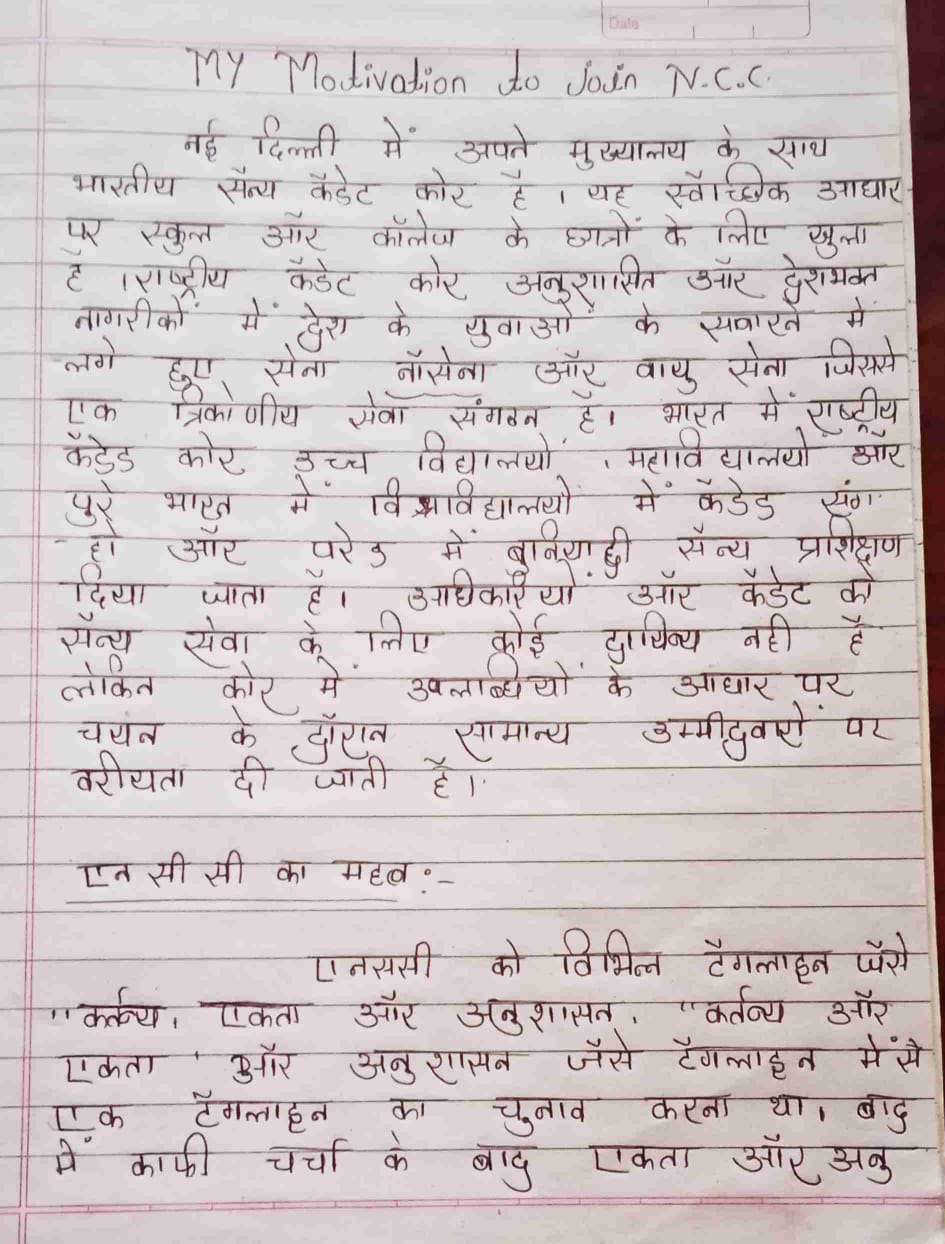 Date
My Motivation to join N.C.C.
नई दिल्ली में अपने मुख्यालय के साथ
भारतीय सैन्य कैडेट कोर है । यह स्वैच्छिक आधार
पर स्कुल और कॉलेज के छात्रों के लिए खुला
है ।राष्ट्रीय कैडेट कोर अनुशासित और देशभक्त
नागरीकों में देश के युवाओं के सवारने में
लगे हुए सेना नौसेना और वायु सेना जिससे
एक त्रिकोणीय सेवा संगठन है। भारत में राष्ट्रीय
कैडेड कोर उच्च विद्यालयों , महाविद्यालयों और
पुरे भारत में विश्वविद्यालयों में कैडेड संग
हो और परेड में बुनियादी सैन्य प्रशिक्षण
दिया जाता है। अधिकारियों और कैडेट को
सैन्य सेवा के लिए कोई दायित्व नही है
लेकिन कोर में उपलब्धियों के आधार पर
चयन के दौरान सामान्य उम्मीदवारों पर
वरीयता दी जाती है।
एन सी सी का महत्व :-
एनससी को विभिन्न टैगलाइन जैसे
"कर्तव्य, एकता और अनुशासन, "कर्तव्य और
एकता ' और अनुशासन जैसे टैगलाइन में से
एक टैगलाइन का चुनाव करना था, बाद
में काफी चर्चा के बाद एकता और अनु